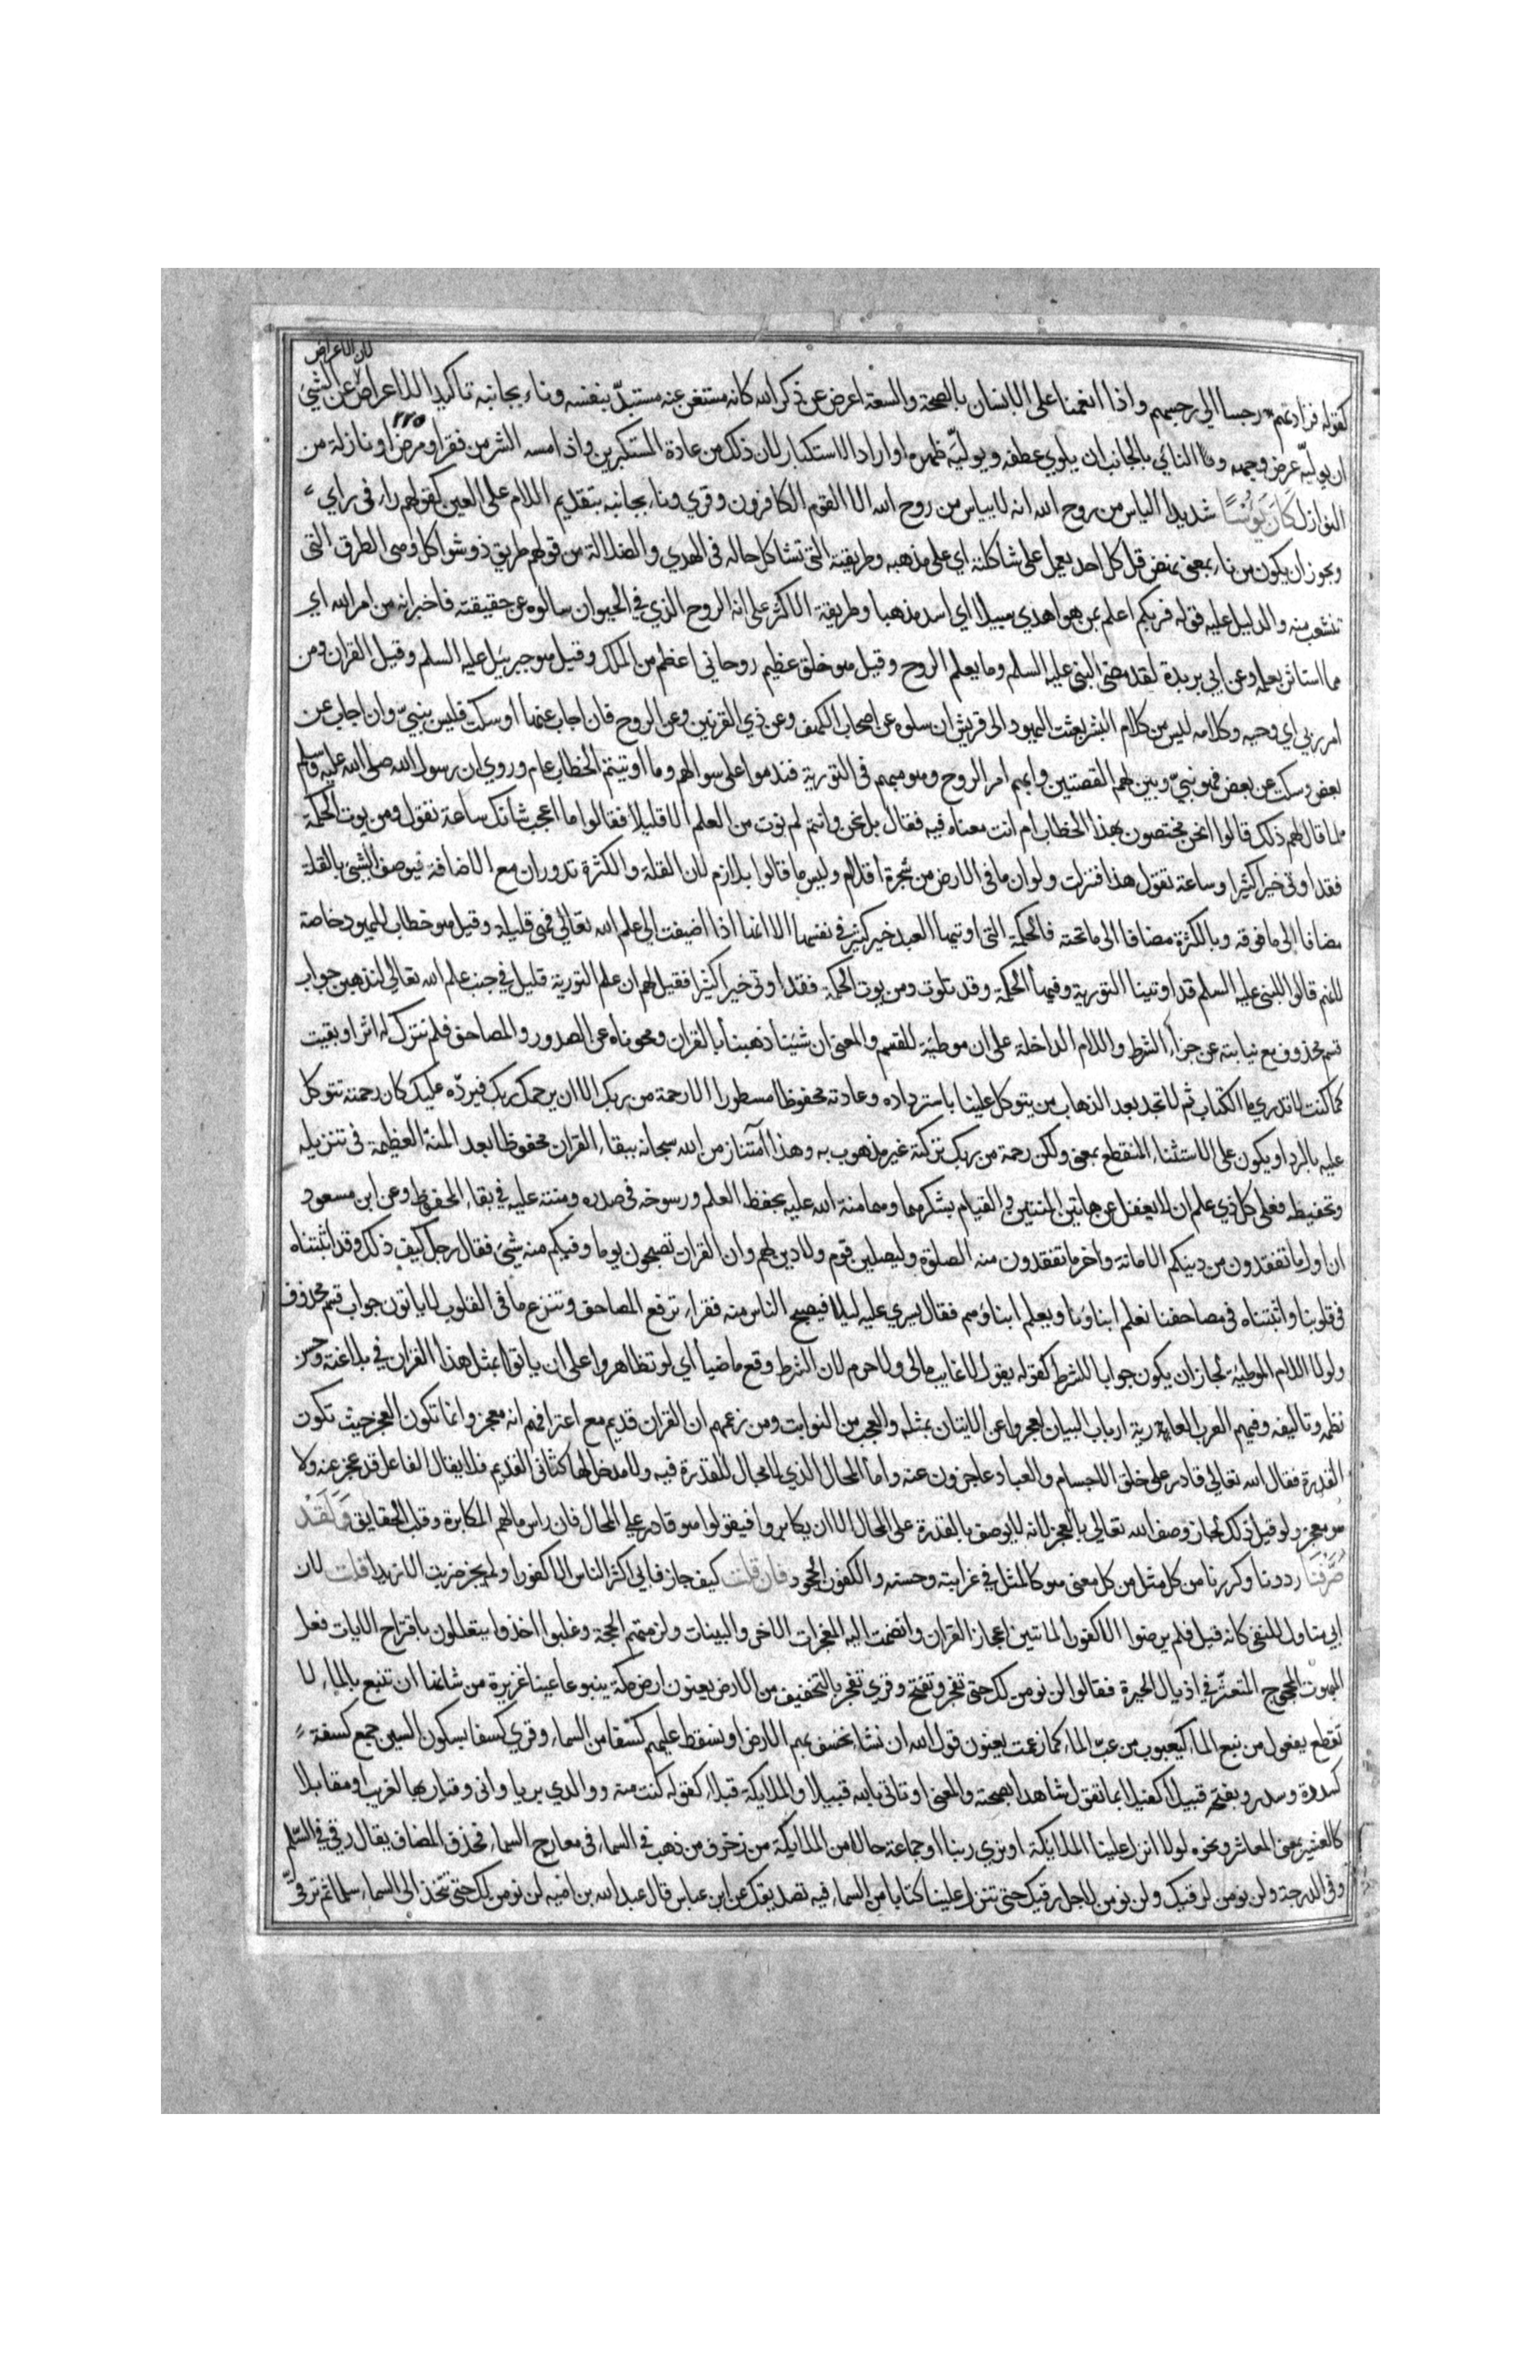 لان الاعراض
كقوله فزادتهم رجسا الي رجسهم واذا انعمنا على الانسان بالصحة والسعة اعرض عن ذكر الله كانه مستغن عنه مستبدّ بنفسه وناء بجانبه تاكيدا للاعراض عن الشئ
٢٢٥
ان يوليّه عرض وجهه والنائي بالجانب ان يلوي عطفه ويوليّه ظهره او اراد الاستكبار لان ذلك من عادة المستكبرين واذا مسه الشر من فقر او مرض او نازلة من
النوازل كَانَ يَؤُسًا شديد الياس من روح الله انه لا يياس من روح الله الا القوم الكافرون وقري وناء بجانبه بتقديم اللام على العين كقولهم راء في راي
ويجوز ان يكون من ناء بمعنى نهض قل كل احد يعمل على شاكلته اي على مذهبه وطريقته التى تشاكل حاله في الهدي والضلالة من قولهم طريق ذو شواكل وهى الطرق التى
تتشعب منه والدليل عليه قوله فربكم اعلم بمن هو اهدي سبيلا اي اسد مذهبا وطريقة الاكثر على انه الروح الذي في الحيوان سالوه عن حقيقته فاخبر انه من امر الله اي
مما استاثر بعلمه وعن ابي بريدة لقد مضى النبى عليه السلم وما يعلم الروح وقيل هو خلق عظيم روحاني اعظم من الملك وقيل هو جبريئل عليه السلم وقيل القران ومن
امر ربي اي وحيه وكلامه ليس من كلام البشر بعثت اليهود الى قريش ان سلوه عن اصحاب الكهف وعن ذي القرنين وعن الروح فان اجاب عنها او سكت فليس بنبيّ وان اجاب عن
بعض وسكت عن بعض فهو نبيّ وبين لهم القصتين وابهم امر الروح وهو مبهم في التورية فندموا على سوالهم وما اوتيتم الخطاب عام وروي ان رسول الله صلى الله عليه وسلم
لما قال لهم ذلك قالوا انحن مختصون بهذا الخطاب ام انت معنا فيه فقال بل نحن وانتم لم نوت من العلم الا قليلا فقالوا ما اعجب شانك ساعة تقول ومن يوت الحكمة
فقد اوتى خيرا كثيرا وساعة تقول هذا فنزلت ولو ان ما في الارض من شجرة اقلام وليس ما قالوا بلازم لان القلة والكثرة تدوران مع الاضافة فيوصف الشئ بالقلة
مضافا الى ما فوقه وبالكثرة مضافا الى ما تحته فالحكمة التى اوتيها العبد خير كثير في نفسها الا انها اذا اضيفت الى علم الله تعالي فهى قليلة وقيل هو خطاب لليهود خاصة
لانهم قالوا للنبى عليه السلم قد اوتينا التورية وفيها الحكمة وقد تلوت ومن يوت الحكمة فقد اوتى خيرا كثيرا فقيل لهم ان علم التورية قليل في جنب علم الله تعالي لنذهبن جواب
قسم محذوف مع نيابته عن جزاء الشرط واللام الداخلة على ان موطئة للقسم والمعنى ان شئنا ذهبنا بالقران ومحوناه عن الصدور والمصاحف فلم نترك له اثرا وبقيت
كما كنت لا تدري ما الكتاب ثم لا تجد بعد الذهاب من يتوكل علينا باسترداده وعادته محفوظا مسطورا الا رحمة من ربك الا ان يرحمك ربك فيردّه عليك كان رحمته تتوكل
عليه بالرد او يكون على الاستثناء المنقطع بمعنى ولكن رحمة من ربك تركته غير مذهوب به وهذا امتنان من الله سبحانه ببقاء القران محفوظا بعد المنة العظيمة في تنزيله
وتحفيظه فعلى كل ذي علم ان لا يغفل عن هاتين المنتين والقيام بشكرهما وهما منة الله عليه بحفظ العلم ورسوخه في صدره ومنته عليه في بقاء المحفوظ وعن ابن مسعود
ان اول ما تفقدون من دينكم الامانة واخر ما تفقدون منه الصلوة وليصلين قوم ولا دين لهم وان القران تصبحون يوما وفيكم منه شئ فقال رجل كيف ذلك وقد اثبتناه
في قلوبنا واثبتناه في مصاحفنا نعلم ابناؤنا ويعلم ابناؤهم فقال يسري عليه ليلا فيصبح الناس منه فقراء ترفع المصاحف وتنزع ما في القلوب لا ياتون جواب قسم محذوف
ولولا اللام الموطئة لجاز ان يكون جوابا للشرط كقوله يقول لا غايب مالى ولا حرم لان الشرط وقع ماضيا اي لو تظاهروا على ان ياتوا بمثل هذا القران في بلاغته وحسن
نظمه وتاليفه وفيهم العرب العاربة ارباب البيان لعجزوا عن الايتان بمثله والعجب من النوابت ومن زعمهم ان القران قديم مع اعترافهم انه معجز وانما تكون العجز حيث تكون
القدرة فقال الله تعالى قادر على خلق الاجسام والعباد عاجزون عنه واما المحال الذي لا مجال للقدرة فيه ولا مدخل لها كثانى القديم فلا يقال الفاعل قد عجز عنه ولا
هو معجز ولو قيل ذلك لجاز وصف الله تعالى بالعجز لانه لا يوصف بالقدرة على المحال الا ان يكابروا فيقولوا هو قادر على المحال فان راس مالهم المكابرة وقلب الحقايق وَلَقَدْ
صَرَّفْنَا رددنا وكررنا من كل مثل من كل معنى هو كالمثل في غرابته وحسنه والكفور الجحود فان قلت كيف جاز فابي اكثر الناس الا كفورا ولم يجز ضربت الا زيدا قلت لان
ابي متاول بالنفى كانه قيل فلم يرضوا الا كفورا لما تبين اعجاز القران وانضمت اليه المعجزات الاخر والبينات ولزمتهم الحجة وغلبوا اخذوا يتعللون باقتراح الايات فعل
المبهوت المحجوج المتعثر في اذيال الحيرة فقالوا لن نومن لك حتى تفجر وتفتح وقري تفجر بالتخفيف من الارض يعنون ارض مكة ينبوعا عينا غزيرة من شانها ان تنبع بالماء لا
تقطع يفعول من نبع الماء كيعبوب من عبّ الماء كما زعمت يعنون قول الله ان نشا نخسف بهم الارض او نسقط عليهم كسفا من السماء وقري كسفا بسكون السين جمع كسفة
كسدرة وسدر وبفتحه قبيلا كفيلا بما تقول شاهدا بصحته والمعنى او تاتى بالله قبيلا والملايكة قبلاء كقوله كنت منه ووالدي بريا وانى وقيار بها لغريب او مقابلا
كالعشير بمعنى المعاشر ونحوه لولا انزل علينا الملايكة او نري ربنا او جماعة حالا من الملايكة من زخرف من ذهب في السماء في معارج السماء فحذف المضاف يقال رقى في السّلم
وفي الدرجة ولن نومن لرقيك ولن نومن لاجل رقيك حتى تنزل علينا كتابا من السماء فيه تصديقك عن ابن عباس قال عبد الله بن امية لن نومن لك حتى تتخذ الى السماء سلما ثم ترقىّ